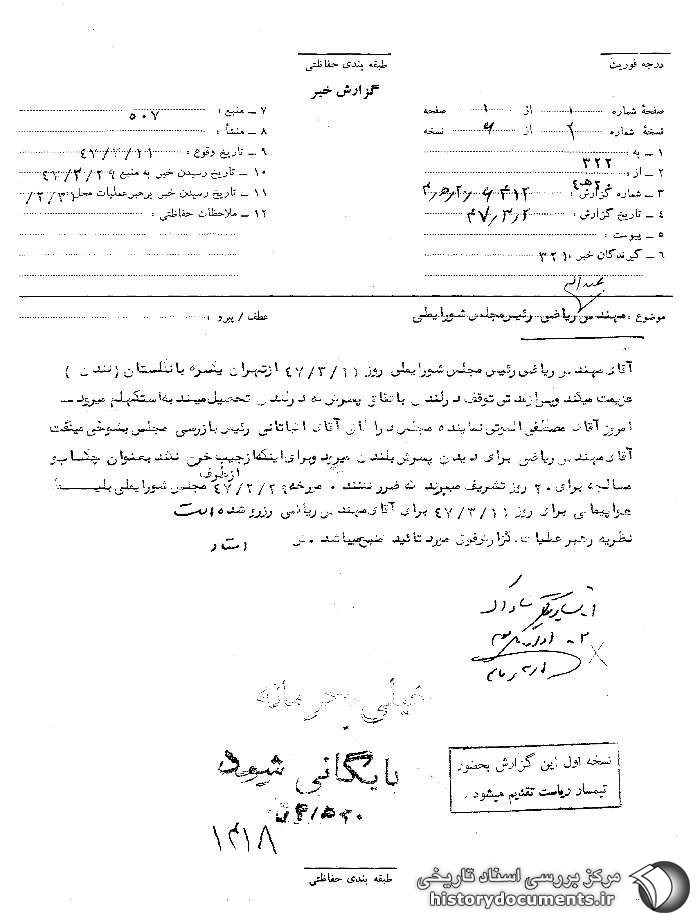 طبقه بندی حفاظتی
درجه فوریت
گزارش خبر
صفحهٔ شماره ۱ از ۱ صفحه
نسخهٔ شماره ۲ از ۴ نسخه
۱ ــ به : ۳۲۲
۲ ــ از : ۲۰ ه‍ ۴
۳ ــ شماره گزارش :
۴ ــ تاریخ گزارش : ۴۷/۳/۲
۵ ــ پیوست :
۶ ــ گیرندگان خبر : ۳۲۱
۷ ــ منبع : ۵۰۷
۸ ــ منشأ :
۹ ــ تاریخ وقوع :
۱۰ ــ تاریخ رسیدن خبر به منبع ۴۷/۲/۲۹
۱۱ ــ تاریخ رسیدن خبر برهبر عملیات محل
۱۲ ــ ملاحظات حفاظتی :
موضوع : مهندس ریاضی رئیس مجلس شورایملی
عطف / پیرو :
آقای مهندس ریاضی رئیس مجلس شورایملی روز ۴۷/۳/۱۱ از تهران یکسره بانگلستان (لندن)
عزیمت میکند و پس از مدتی توقف در لندن باتفاق پسرش که در لندن تحصیل میکند به استکهلم میرود ــ
امروز آقای مصطفی الموتی نماینده مجلس در اطاق آقای رئیس بازرسی مجلس بشوخی میگفت
آقای مهندس ریاضی برای دیدن پسرش بلندن میرود و برای اینکه از جیب خرج نکند بعنوان چکاپ و
معالجه برای ۲۰ روز تشریف میبرند که ضرر نکنند . مورخه ۴۷/۲/۲۹ از طرف مجلس شورایملی بلیط
هواپیمائی برای روز ۴۷/۳/۱۱ برای آقای مهندس ریاضی رزرو شده است
نظریه رهبر عملیات . گزارش فوق مورد تائید میباشد .
استاد
خیلی محرمانه
بایگانی شود
۱۴۱۸
نسخه اول این گزارش بحضور
تیمسار ریاست تقدیم میشود .
طبقه بندی حفاظتی
مرکز بررسی اسناد تاریخی
historydocuments.ir